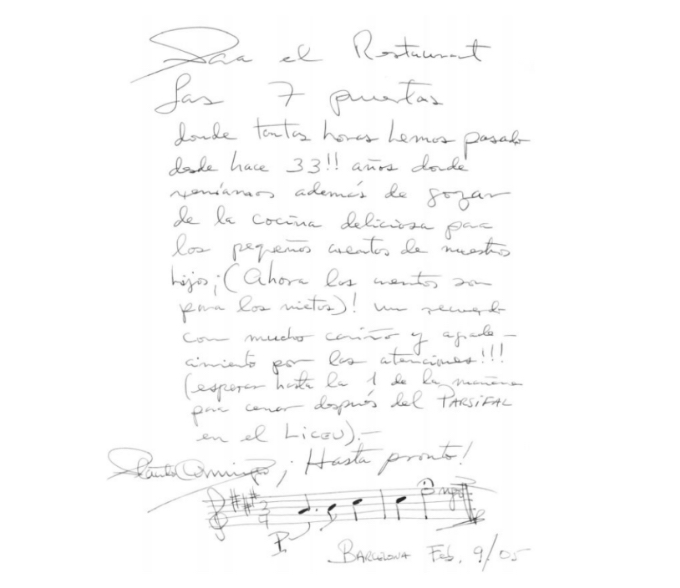 Para el Restaurant
Las 7 puertas
donde tantas horas hemos pasado
desde hace 33!! años donde
veníamos además de gozar
de la cocina deliciosa para
los pequeños cuentos de nuestros
hijos; (Ahora los cuentos son
para los nietos)! un recuerdo
con mucho cariño y agrade-
cimiento por las atenciones!!!
(esperar hasta la 1 de la mañana
para cenar después del PARSIFAL
en el LICEU).-
¡Hasta pronto!
BARCELONA Feb. 9/05